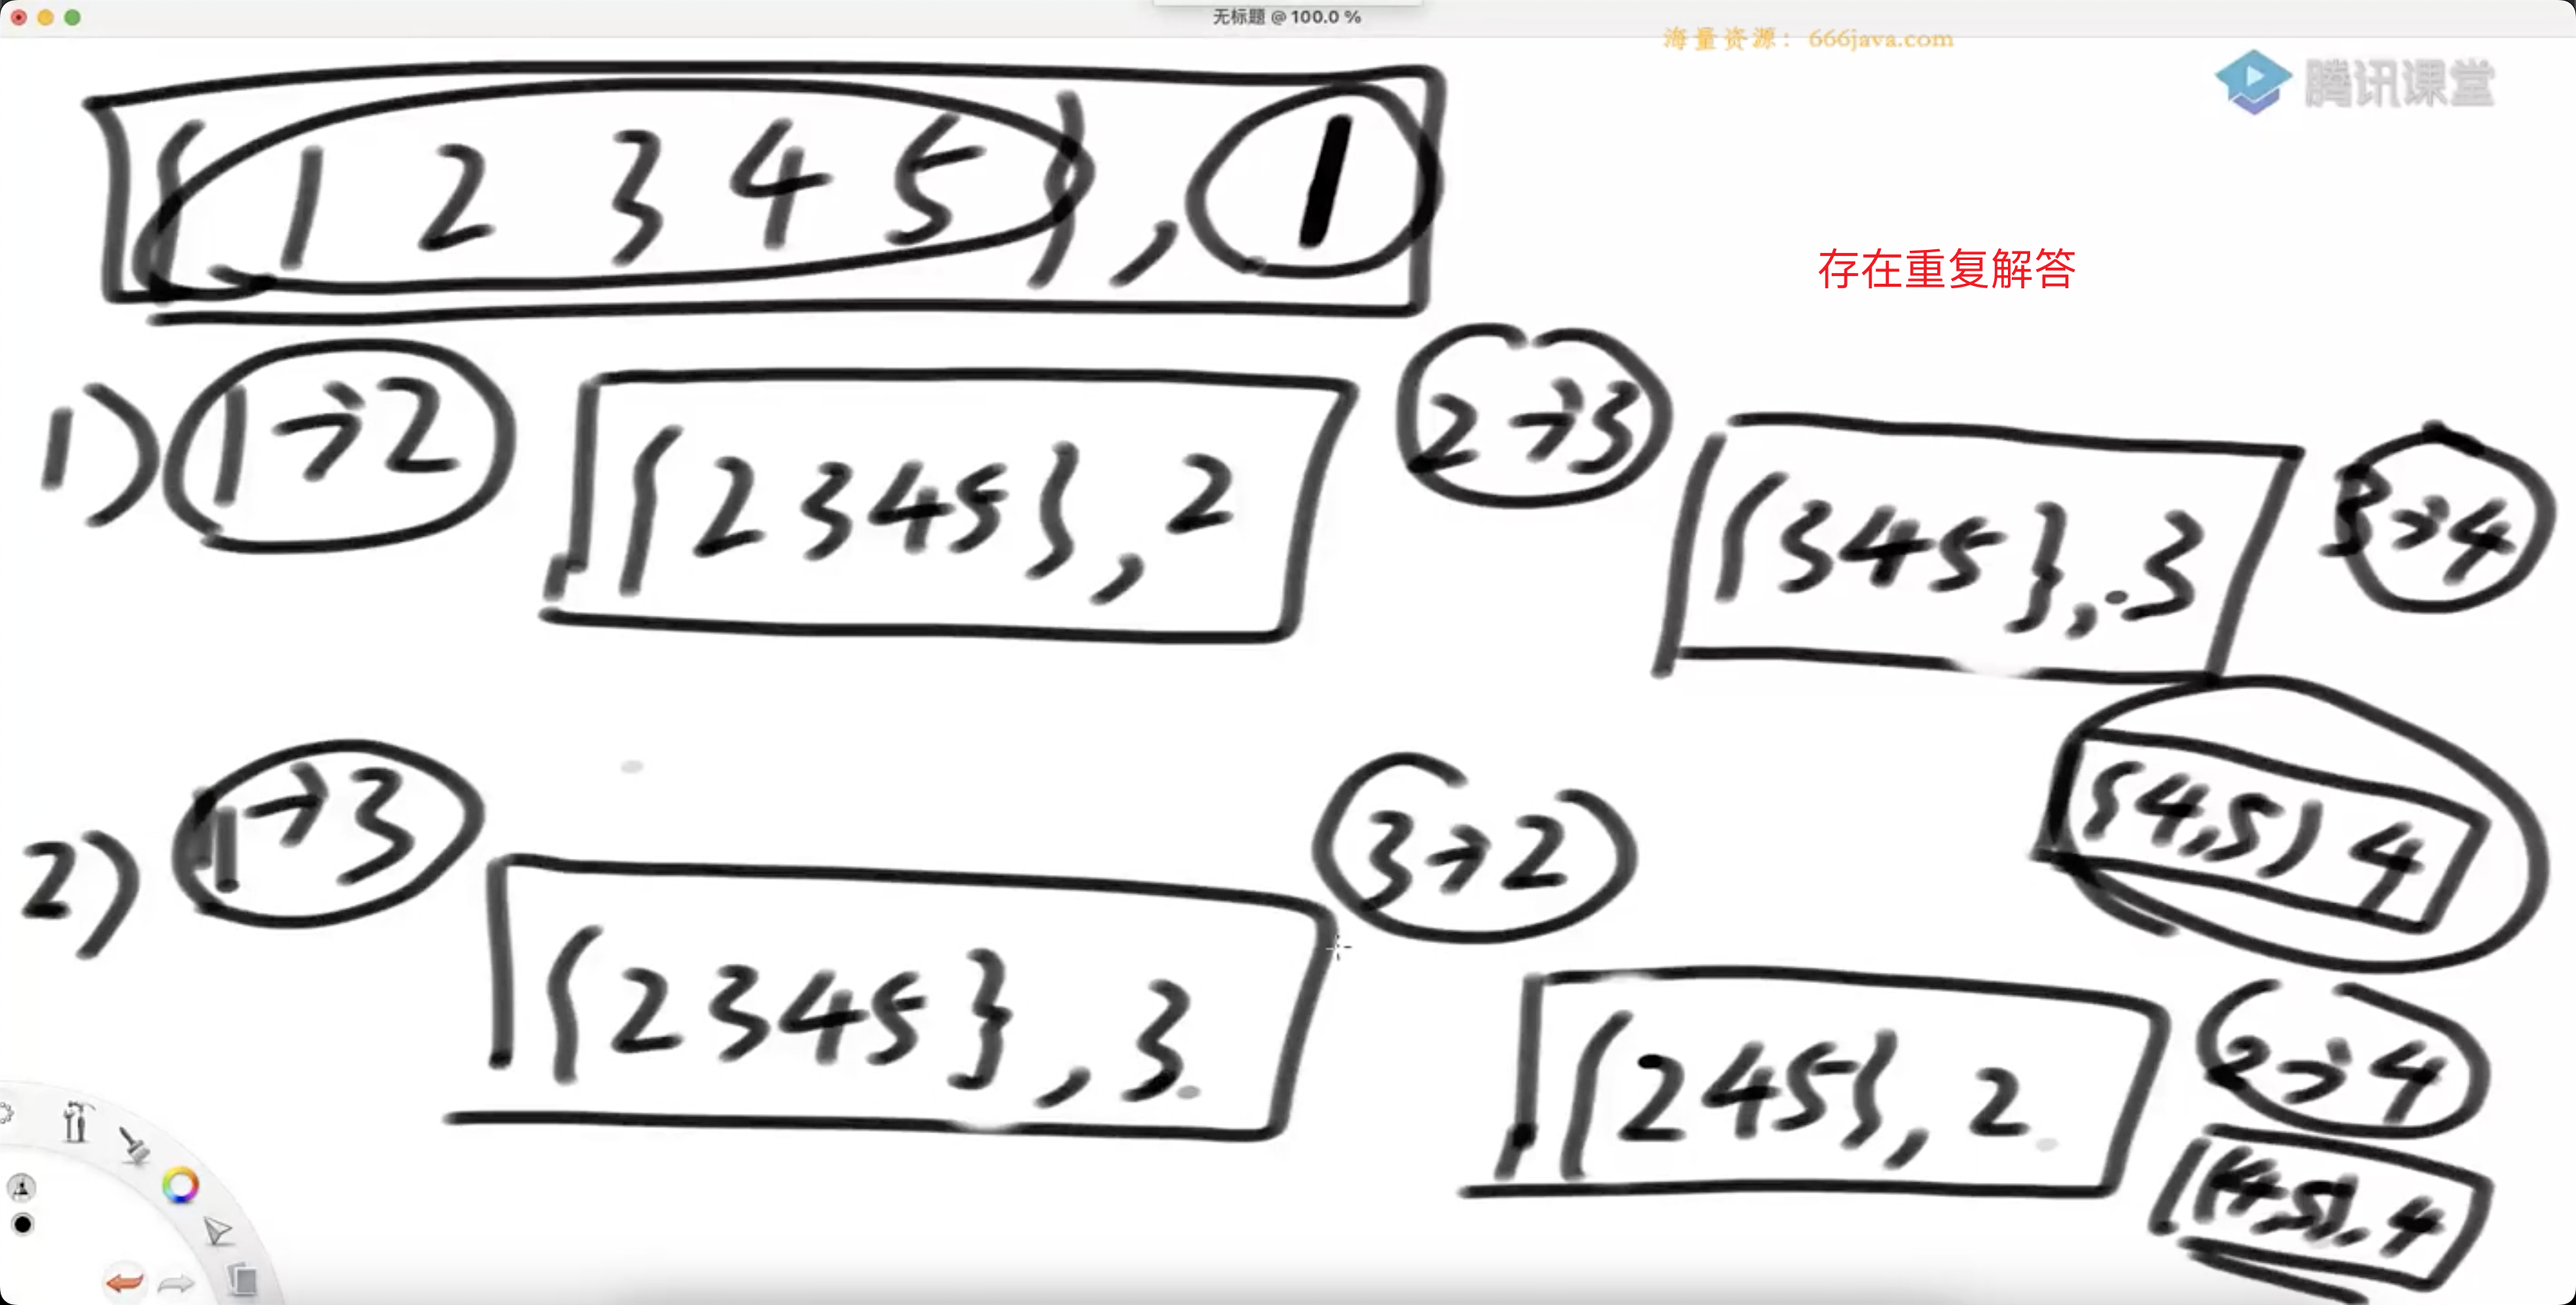 无标题 @ 100.0 %
海量资源：666java.com
腾讯课堂
{ 1 2 3 4 5 } , 1
存在重复解答
1) 1→2 {2 3 4 5} , 2 2→3 {3 4 5} , 3 3→4
{4,5} 4
2) 1→3 {2 3 4 5} , 3 3→2 {2 4 5} , 2 2→4
{4,5}, 4